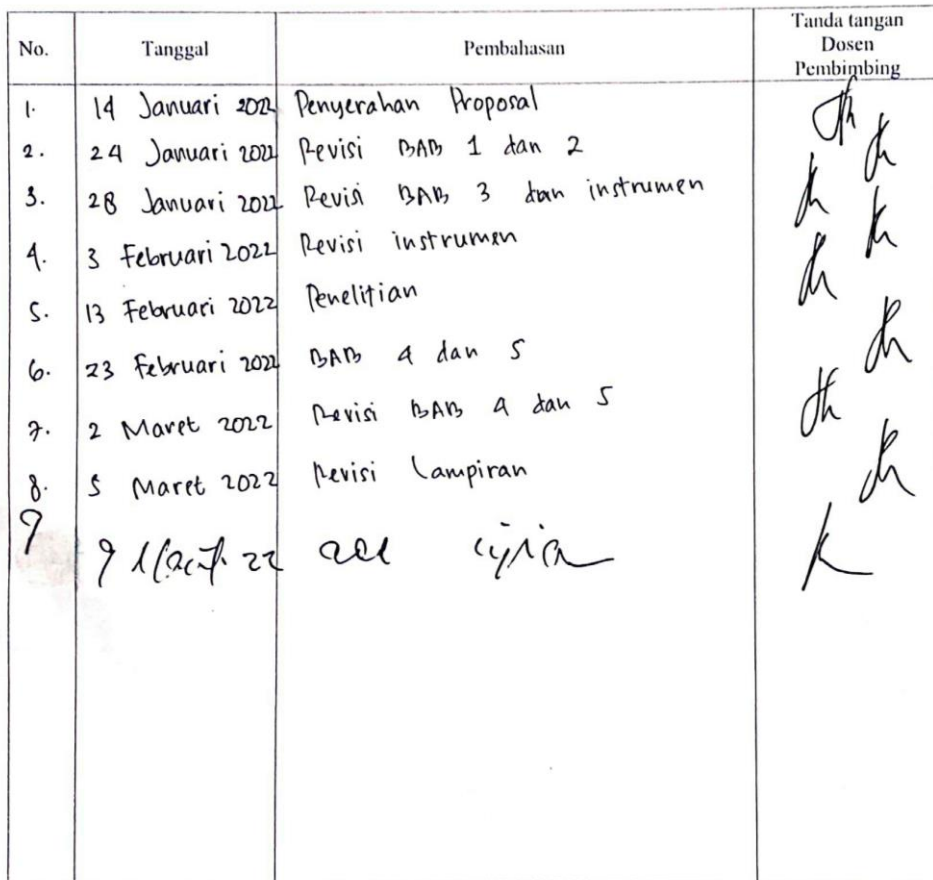 No. Tanggal Pembahasan Tanda tangan Dosen Pembimbing
1. 14 Januari 2022 Penyerahan Proposal
2. 24 Januari 2022 Revisi BAB 1 dan 2
3. 28 Januari 2022 Revisi BAB 3 dan instrumen
4. 3 Februari 2022 Revisi instrumen
5. 13 Februari 2022 Penelitian
6. 23 Februari 2022 BAB 4 dan 5
7. 2 Maret 2022 Revisi BAB 4 dan 5
8. 5 Maret 2022 Revisi Lampiran
9 9 Maret 22 acc ujian